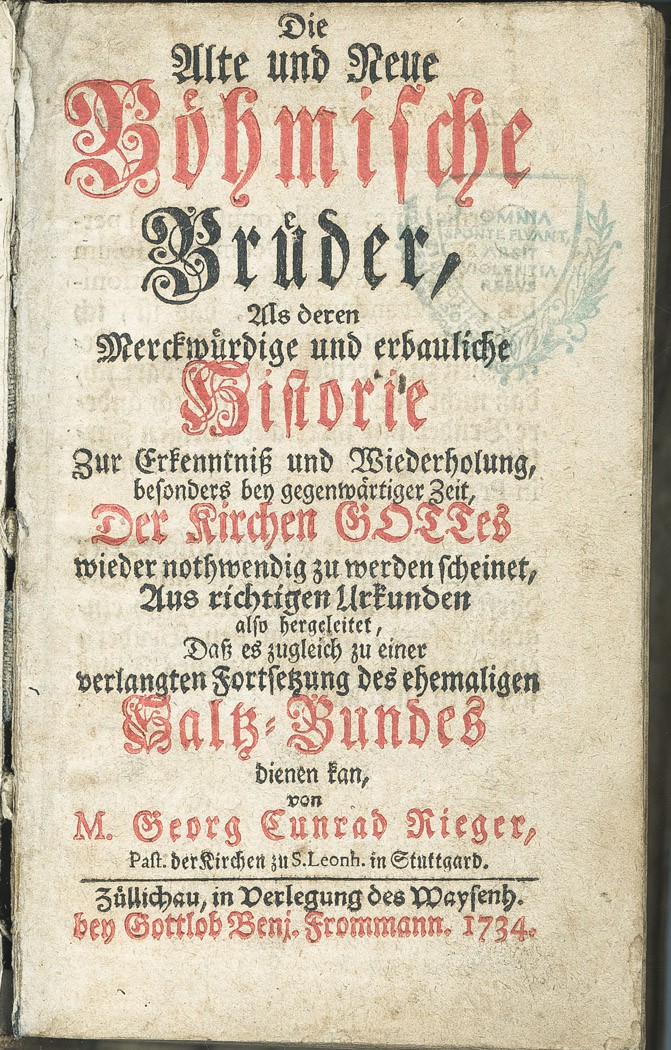 Die
Alte und Neue
Boͤhmische
Bruͤder,
Als deren
Merckwuͤrdige und erbauliche
Historie
Zur Erkenntniß und Wiederholung,
besonders bey gegenwaͤrtiger Zeit,
Der Kirchen GOTTes
wieder nothwendig zu werden scheinet,
Aus richtigen Urkunden
also hergeleitet,
Daß es zugleich zu einer
verlangten Fortsetzung des ehemaligen
Saltz-Bundes
dienen kan,
von
M. Georg Cunrad Rieger,
Past. der Kirchen zu S. Leonh. in Stuttgard.
Züllichau, in Verlegung des Waysenh.
bey Gottlob Benj. Frommann. 1734.
OMNIA
SPONTE FLUANT,
ABSIT
VIOLENTIA
REBUS